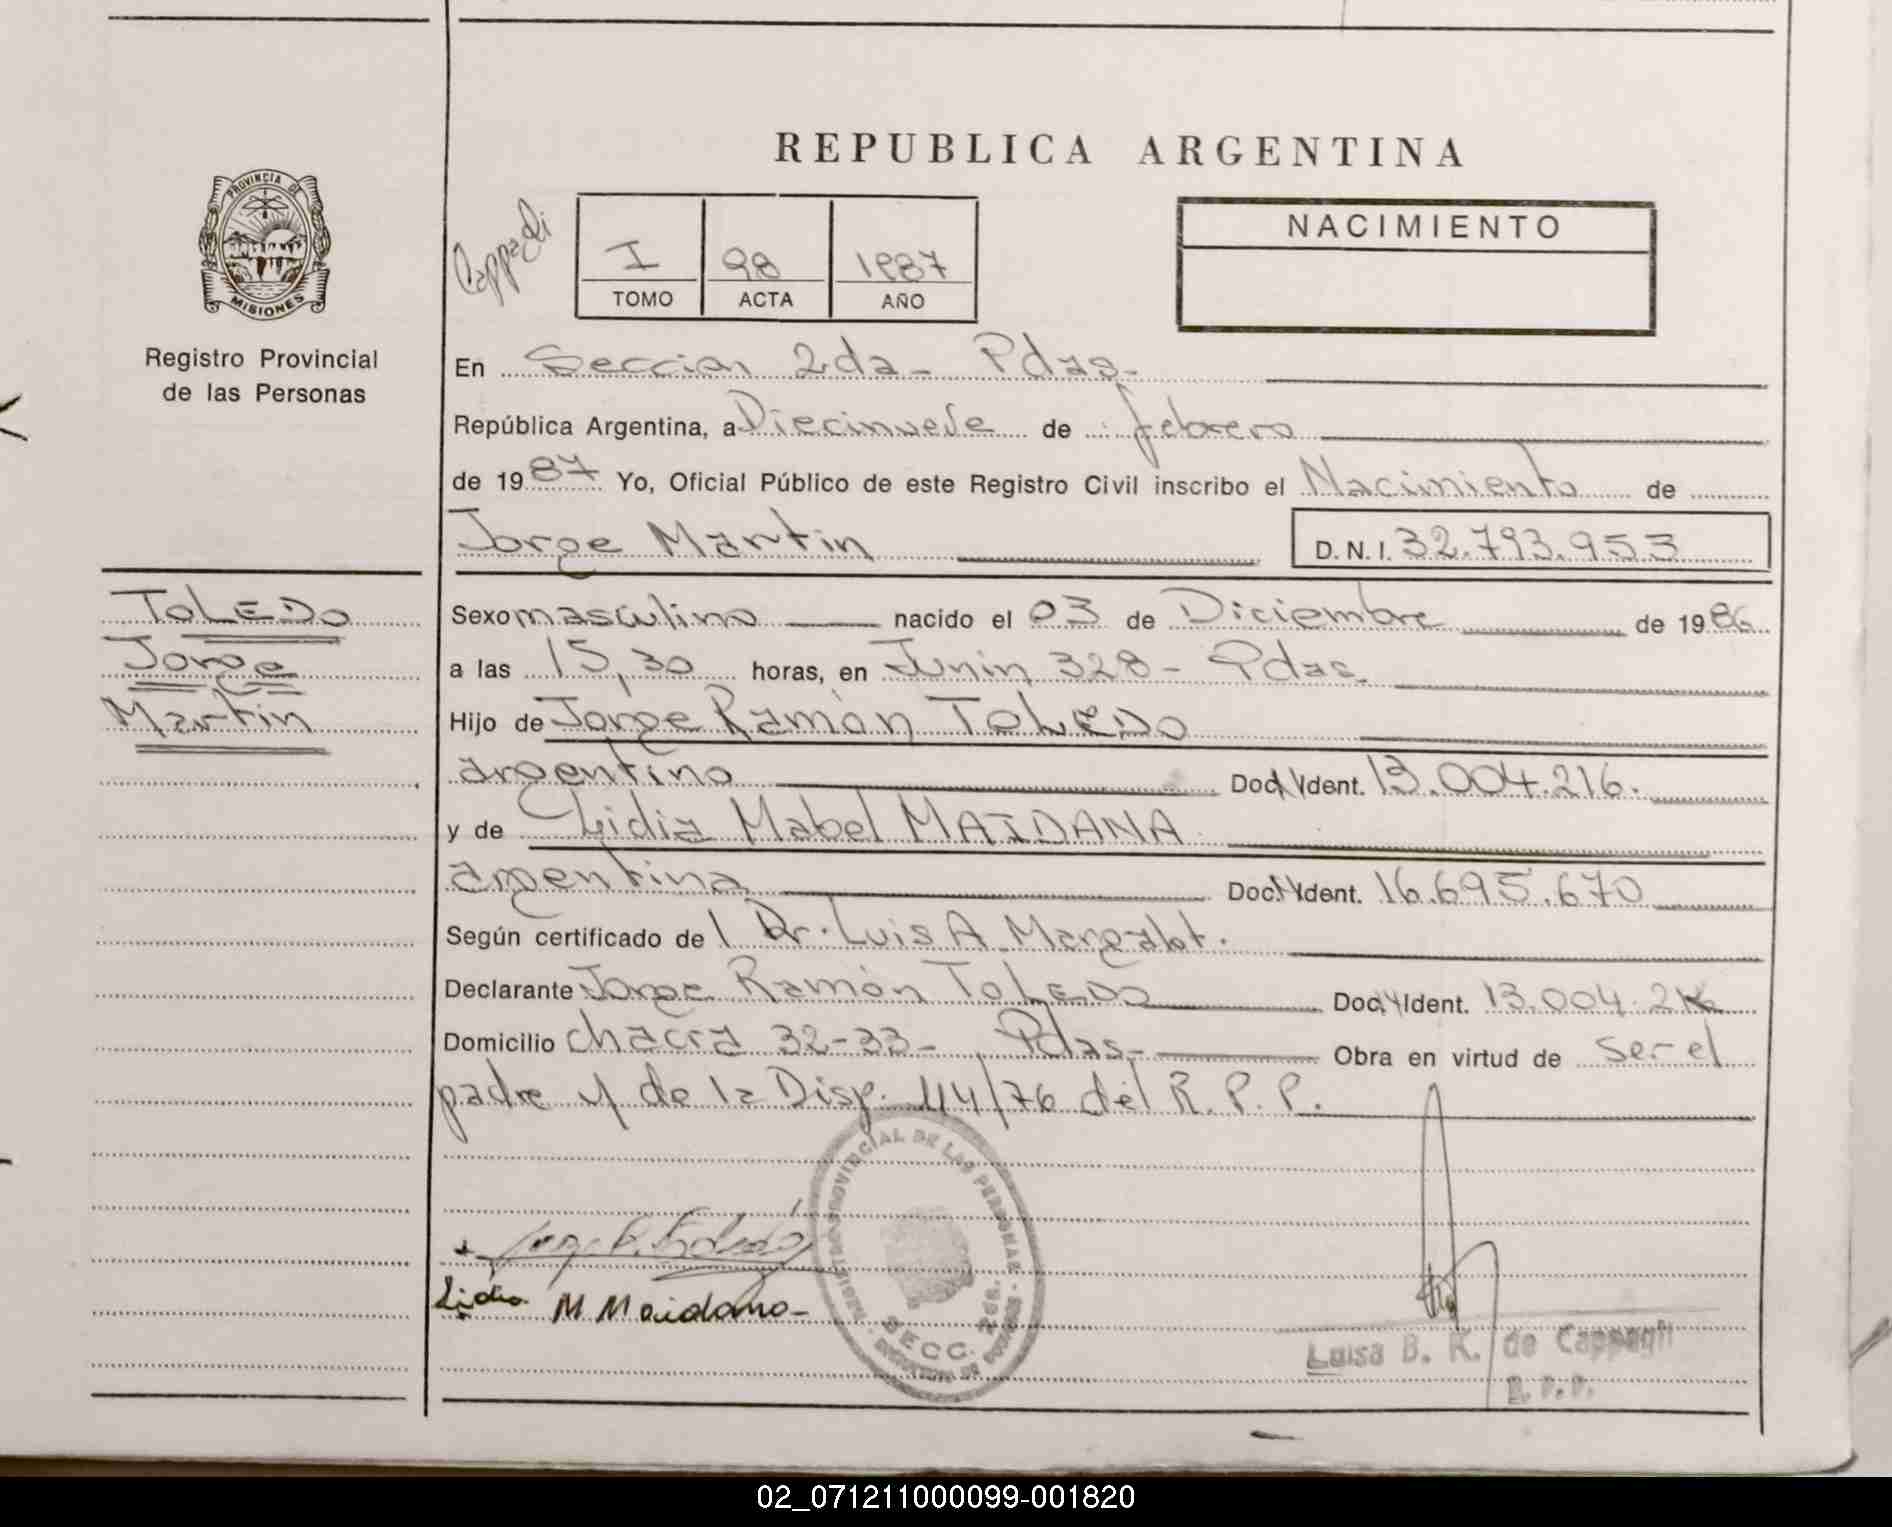 REPUBLICA ARGENTINA
PROVINCIA DE
MISIONES
Registro Provincial
de las Personas
TOLEDO
Jorge
Martin
I 98 1987
TOMO ACTA AÑO
NACIMIENTO
En Seccion 2da - Pdas.
República Argentina, a Diecinueve de febrero
de 1987 Yo, Oficial Público de este Registro Civil inscribo el Nacimiento de
Jorge Martin D.N.I. 32.793.953
Sexo masculino nacido el 03 de Diciembre de 1986
a las 15,30 horas, en Junin 328 - Pdas.
Hijo de Jorge Ramón TOLEDO
argentino Doc. Ident. 13.004.216.
y de Lidia Mabel MAIDANA
argentina Doc. Ident. 16.695.670
Según certificado de l Dr. Luis A.
Declarante Jorge Ramón TOLEDO Doc. Ident. 13.004.216
Domicilio chacra 32-33 - Pdas. Obra en virtud de ser el
padre y de la Disp. 44/76 del R.P.P.
REGISTRO PROVINCIAL DE LAS PERSONAS
SECC. 2da.
Lidia M Maidana
Luisa B. K. de Cappagli
R.P.P.
02_071211000099-001820